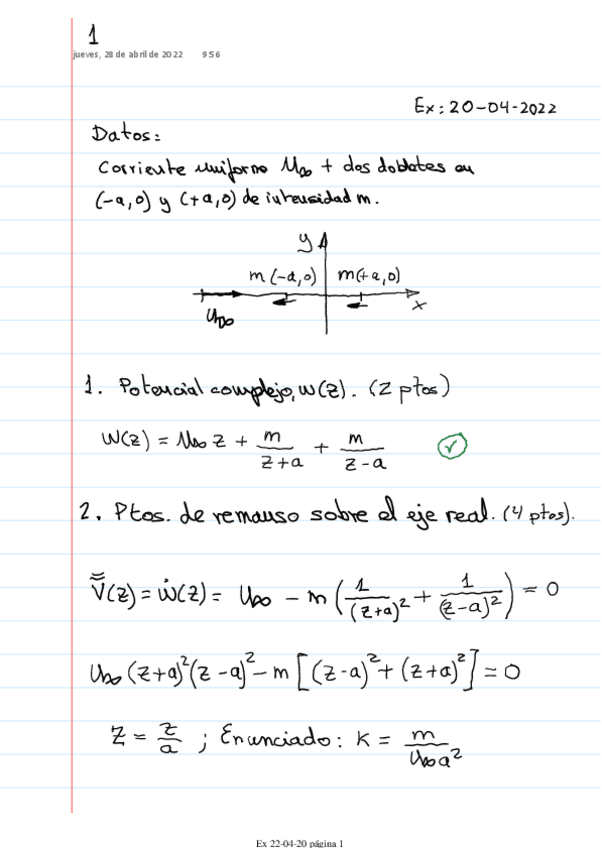 1
jueves, 28 de abril de 2022 9:56
Ex: 20-04-2022
Datos:
Corriente uniforme U∞ + dos dobletes en
(-a,0) y (+a,0) de intensidad m.
y
m(-a,0) m(+a,0)
U∞ x
1. Potencial complejo, w(z). (2 ptos)
W(z) = U∞ z + m/(z+a) + m/(z-a) ✓
2. Ptos. de remanso sobre el eje real. (4 ptos).
Ṽ(z) = ẇ(z) = U∞ - m (1/(z+a)² + 1/(z-a)²) = 0
U∞ (z+a)² (z-a)² - m [(z-a)² + (z+a)²] = 0
Z = z/a ; Enunciado: K = m/(U∞a²)
Ex 22-04-20 página 1